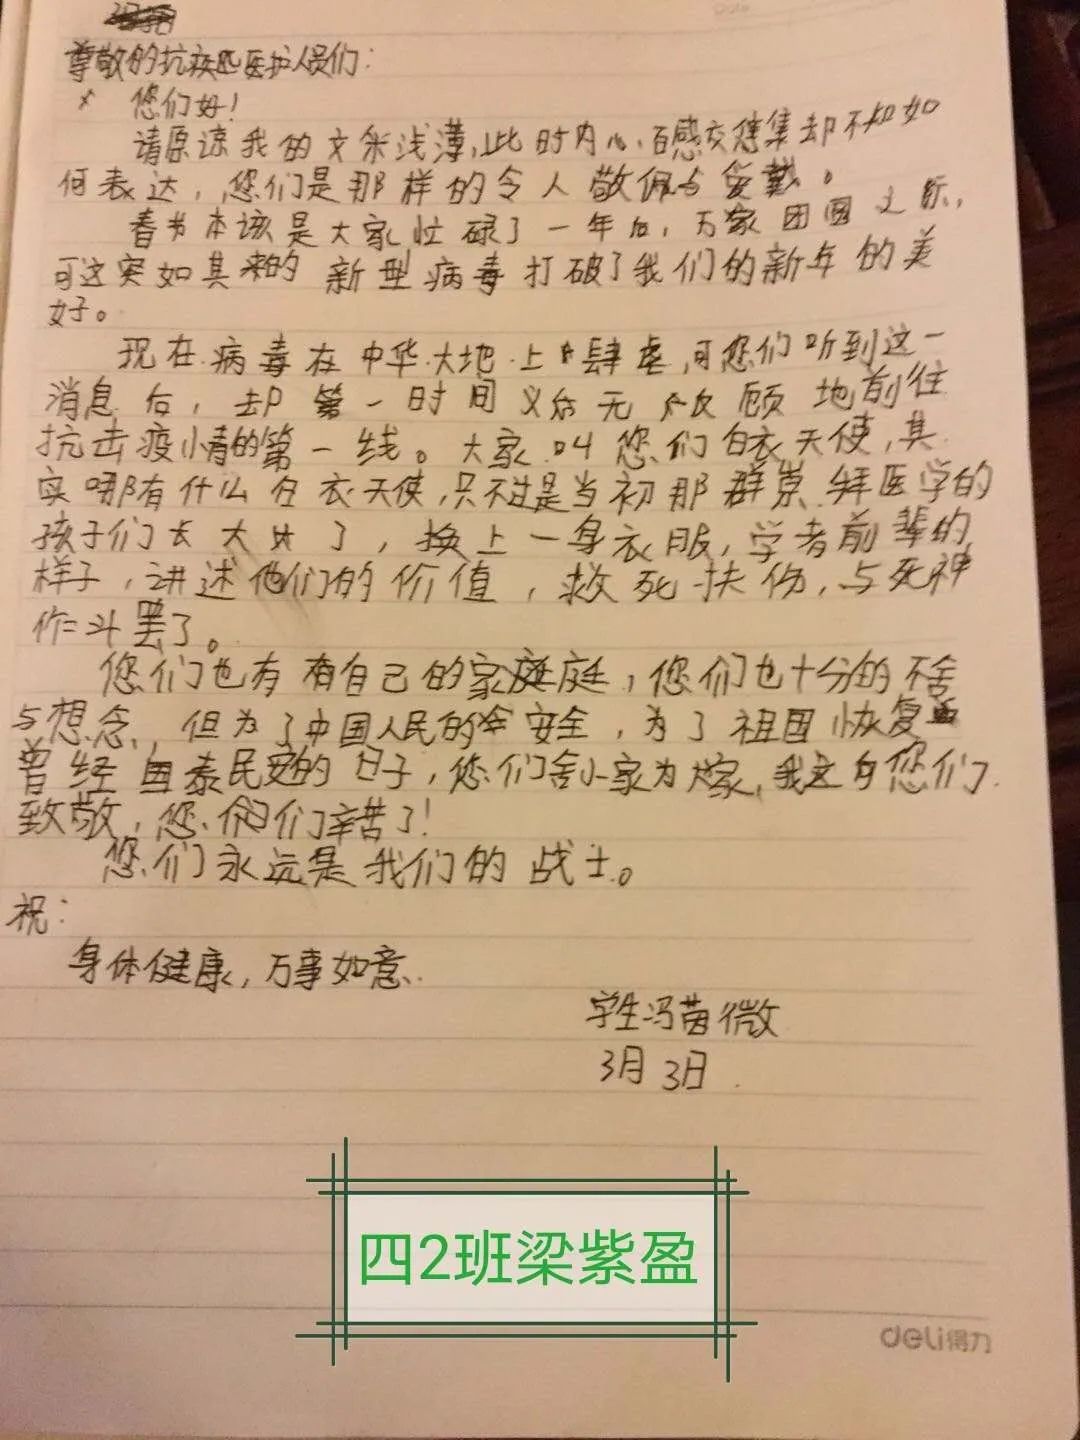 尊敬的抗疾医护人员们：
您们好！
请原谅我的文采浅薄，此时内心百感交集却不知如
何表达，您们是那样的令人敬佩与爱戴。
春节本该是大家忙碌了一年后，万家团圆之际，
可这突如其来的新型病毒打破了我们的新年的美
好。
现在病毒在中华大地上肆虐，可您们听到这一
消息后，却第一时间义无反顾地前往
抗击疫情的第一线。大家叫您们白衣天使，其
实哪有什么白衣天使，只不过是当初那群崇拜医学的
孩子们长大了，换上一身衣服，学着前辈的
样子，讲述他们的价值，救死扶伤，与死神
作斗罢了。
您们也有有自己的家庭，您们也十分的不舍
与想念，但为了中国人民的安全，为了祖国恢复
曾经国泰民安的日子，您们舍小家为大家，我这向您们
致敬，您们辛苦了！
您们永远是我们的战士。
祝：
身体健康，万事如意
学生冯茵微
3月3日
四2班梁紫盈
deli得力